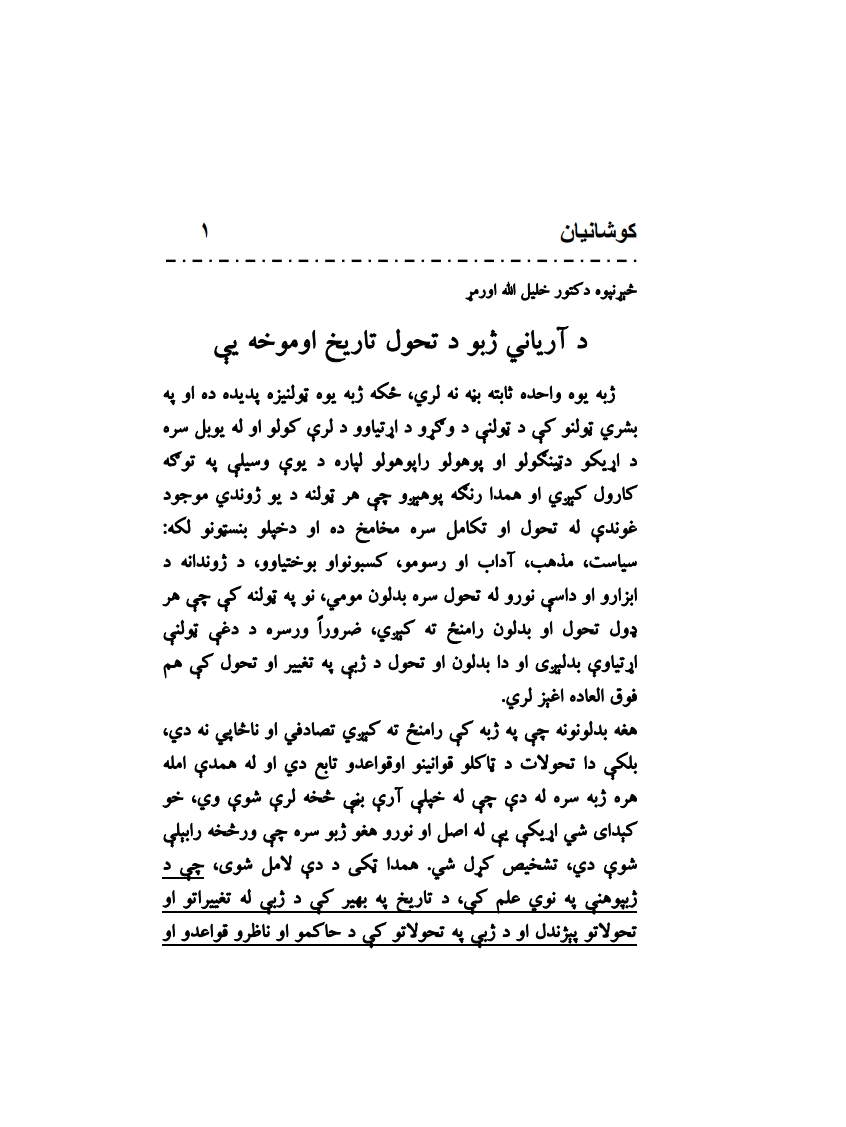 کوشانیان ۱
څېړنپوه دکتور خلیل الله اورمړ
د آریاني ژبو د تحول تاریخ اوموخه یې
ژبه یوه واحده ثابته بڼه نه لري، ځکه ژبه یوه ټولنیزه پدیده ده او په
بشري ټولنو کې د ټولنې د وګړو د اړتیاوو د لرې کولو او له یوبل سره
د اړیکو دټینګولو او پوهولو راپوهولو لپاره د یوې وسیلې په توګه
کارول کېږي او همدا رنګه پوهېږو چې هر ټولنه د یو ژوندي موجود
غوندې له تحول او تکامل سره مخامخ ده او دخپلو بنسټونو لکه:
سیاست، مذهب، آداب او رسومو، کسبونواو بوختیاوو، د ژوندانه د
ابزارو او داسې نورو له تحول سره بدلون مومي، نو په ټولنه کې چې هر
ډول تحول او بدلون رامنځ ته کېږي، ضروراً ورسره د دغې ټولنې
اړتیاوې بدلېږی او دا بدلون او تحول د ژبې په تغییر او تحول کې هم
فوق العاده اغېز لري.
هغه بدلونونه چې په ژبه کې رامنځ ته کېږي تصادفي او ناڅاپي نه دي،
بلکې دا تحولات د ټاکلو قوانینو اوقواعدو تابع دي او له همدې امله
هره ژبه سره له دې چې له خپلې آرې بڼې څخه لرې شوې وي، خو
کېدای شي اړیکې یې له اصل او نورو هغو ژبو سره چې ورڅخه راببلې
شوې دي، تشخیص کړل شي. همدا ټکی د دې لامل شوی، چې د
ژبپوهنې په نوي علم کې، د تاریخ په بهیر کې د ژبې له تغییراتو او
تحولاتو پېژندل او د ژبې په تحولاتو کې د حاکمو او ناظرو قواعدو او